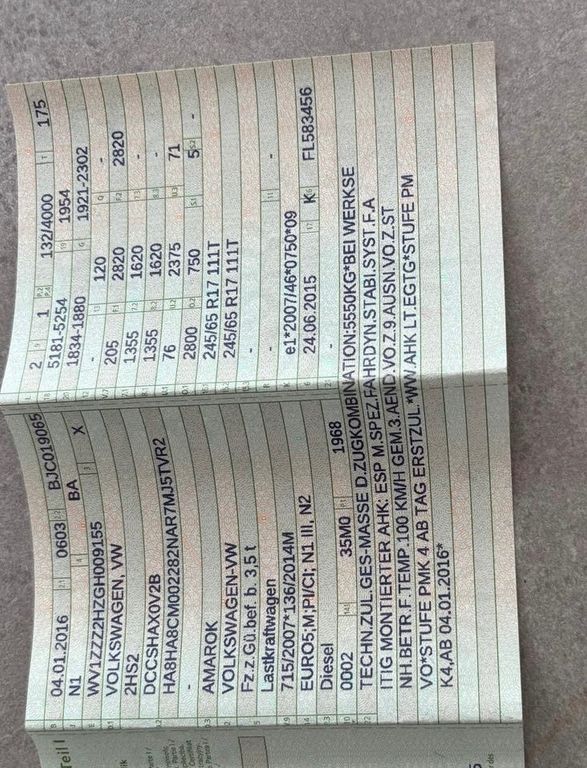 04.01.2016 2.1 0603 2.2 BJC019065
N1 4 BA
WV1ZZZ2HZGH009155 3 X
VOLKSWAGEN, VW
2HS2
DCCSHAX0V2B
HA8HA8CM002282NAR7MJ5TVR2
-
AMAROK
VOLKSWAGEN-VW
Fz.z.Gü.bef. b. 3,5 t
Lastkraftwagen
715/2007*136/2014M
EURO5;M;PI/CI; N1 III, N2
Diesel
0002 14.1 35M0 P.1 1968
L 2 9 1 P.2 P.4 132/4000 T 175
18 5181-5254 19 1954
20 1834-1880 G 1921-2302
12 - 13 120 Q -
V.7 205 F.1 2820 F.2 2820
7.1 1355 7.2 1620 7.3 -
8.1 1355 8.2 1620 8.3 -
U.1 76 U.2 2375 U.3 71
O.1 2800 O.2 750 S.1 5 S.2 -
15.1 245/65 R17 111T
15.2 245/65 R17 111T
15.3 -
R - 11 -
K e1*2007/46*0750*09
6 24.06.2015 17 K 16 FL583456
21 -
22 TECHN.ZUL.GES-MASSE D.ZUGKOMBINATION:5550KG*BEI WERKSE
ITIG MONTIERTER AHK: ESP M.SPEZ.FAHRDYN.STABI.SYST.F.A
NH.BETR.F.TEMP.100 KM/H GEM.3.AEND.VO.Z.9.AUSN.VO.Z.ST
VO*STUFE PMK 4 AB TAG ERSTZUL.*WW.AHK LT.EGTG*STUFE PM
K4,AB 04.01.2016*